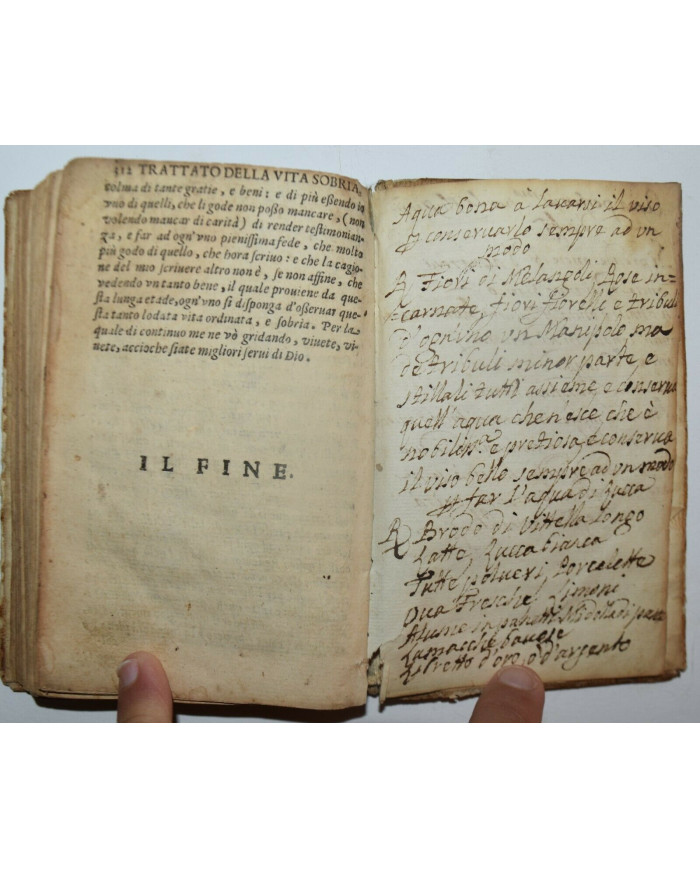 312 TRATTATO DELLA VITA SOBRIA.
colma di tante gratie, e beni: e di più eßendo io
vno di quelli, che li gode non poßo mancare, (non
volendo mancar di carità) di render testimonian-
za, e far ad ogn'vno pienissima fede, che molto
più godo di quello, che hora scriuo: e che la cagio-
ne del mio scriuere altro non è, se non affine, che
vedendo vn tanto bene, il quale prouiene da que-
sta lunga etade, ogn'vno si disponga d'oßeruar que-
sta tanto lodata vita ordinata, e sobria. Per la
quale di continuo me ne vò gridando, viuete, vi-
uete, accioche siate migliori serui di Dio.
IL FINE.
Aqua bona à lauarsi il viso
conseruarlo sempre ad vn
modo
Fiori di Melangoli, Rose in-
carnate, fiori e tribuli
d'ognino vn Manipolo ma
de tribuli minor parte, e
stillali tutti assieme, e conserua
quell'aqua che n'esce che è
nobiliss.ª e pretiosa, e conserua
il viso bello sempre ad vn modo
far l'aqua di Zucca
Brodo di Vittella longo
Latte, Zucca bianca
Tutte polueri, Porcelette
Oua Fresche, Limoni
Alume in
Lumacche bauose
Libretto d'oro, o d'argento